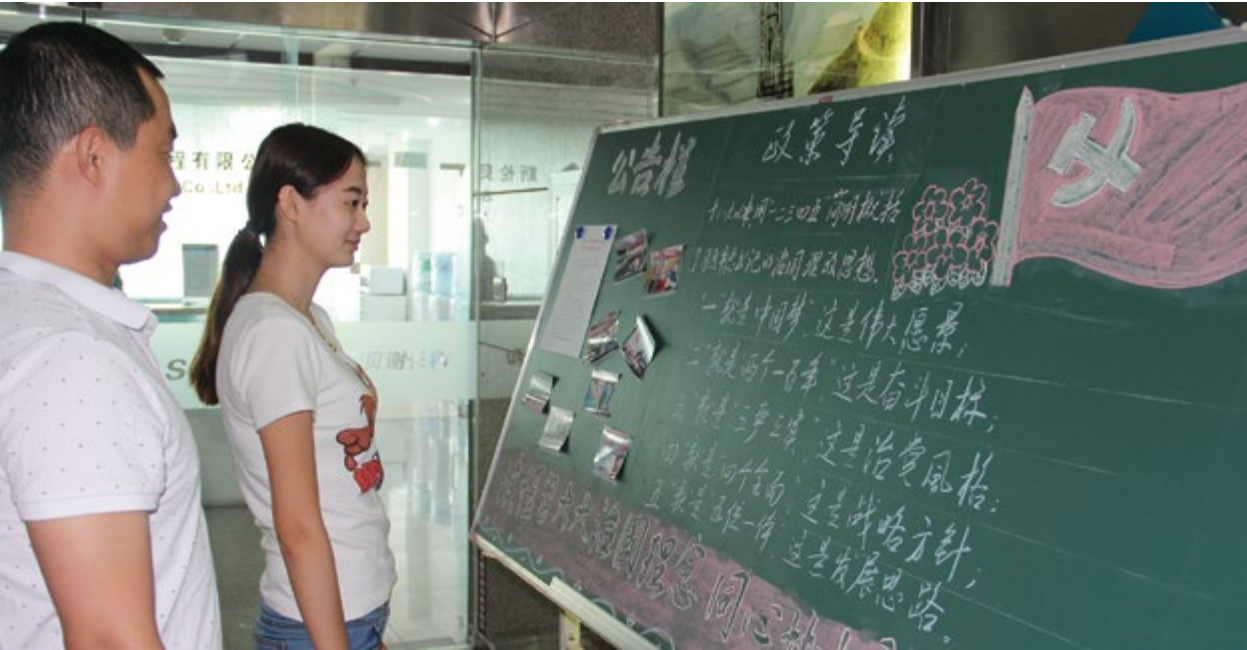 程有限公
Co.,Ltd
公告栏
政策导读
十八大以来用“一二三四五”简明概括
习总书记的治国理政思想.
一就是“中国梦”,这是伟大愿景;
二就是“两个一百年”,这是奋斗目标;
三就是“三严三实”,这是治党风格;
四就是“四个全面”,这是战略方针;
五就是“五位一体”,这是发展思路。
治国理念 同心